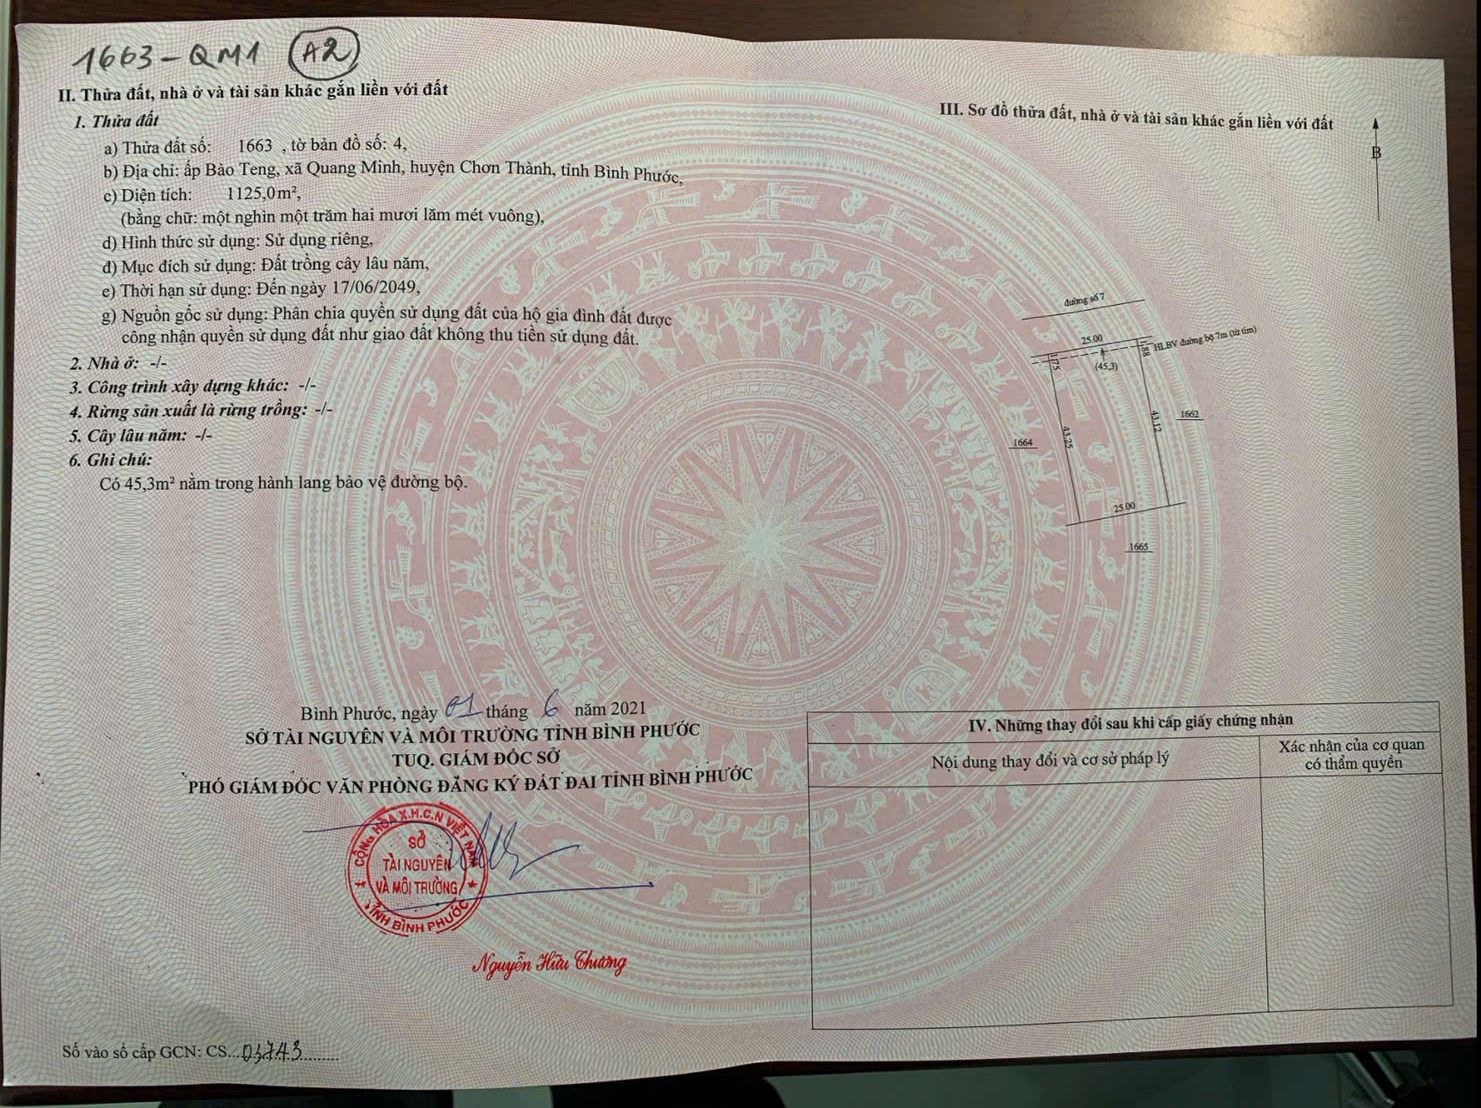 1663-QM1 A2
II. Thửa đất, nhà ở và tài sản khác gắn liền với đất
1. Thửa đất
a) Thửa đất số: 1663 , tờ bản đồ số: 4,
b) Địa chỉ: ấp Bào Teng, xã Quang Minh, huyện Chơn Thành, tỉnh Bình Phước,
c) Diện tích: 1125,0m²,
(bằng chữ: một nghìn một trăm hai mươi lăm mét vuông),
d) Hình thức sử dụng: Sử dụng riêng,
đ) Mục đích sử dụng: Đất trồng cây lâu năm,
e) Thời hạn sử dụng: Đến ngày 17/06/2049,
g) Nguồn gốc sử dụng: Phân chia quyền sử dụng đất của hộ gia đình đất được
công nhận quyền sử dụng đất như giao đất không thu tiền sử dụng đất.
2. Nhà ở: -/-
3. Công trình xây dựng khác: -/-
4. Rừng sản xuất là rừng trồng: -/-
5. Cây lâu năm: -/-
6. Ghi chú:
Có 45,3m² nằm trong hành lang bảo vệ đường bộ.
Bình Phước, ngày 01 tháng 6 năm 2021
SỞ TÀI NGUYÊN VÀ MÔI TRƯỜNG TỈNH BÌNH PHƯỚC
TUQ. GIÁM ĐỐC SỞ
PHÓ GIÁM ĐỐC VĂN PHÒNG ĐĂNG KÝ ĐẤT ĐAI TỈNH BÌNH PHƯỚC
CỘNG HÒA X.H.C.N VIỆT NAM
SỞ
TÀI NGUYÊN
VÀ MÔI TRƯỜNG
TỈNH BÌNH PHƯỚC
Nguyễn Hữu Thương
Số vào sổ cấp GCN: CS...03743.........
III. Sơ đồ thửa đất, nhà ở và tài sản khác gắn liền với đất
B
đường số 7
25.00
HLBV đường bộ 7m (từ tim)
1.75
1.88
(45,3)
1662
1664
43.25
43.12
25.00
1665
IV. Những thay đổi sau khi cấp giấy chứng nhận
Nội dung thay đổi và cơ sở pháp lý
Xác nhận của cơ quan
có thẩm quyền